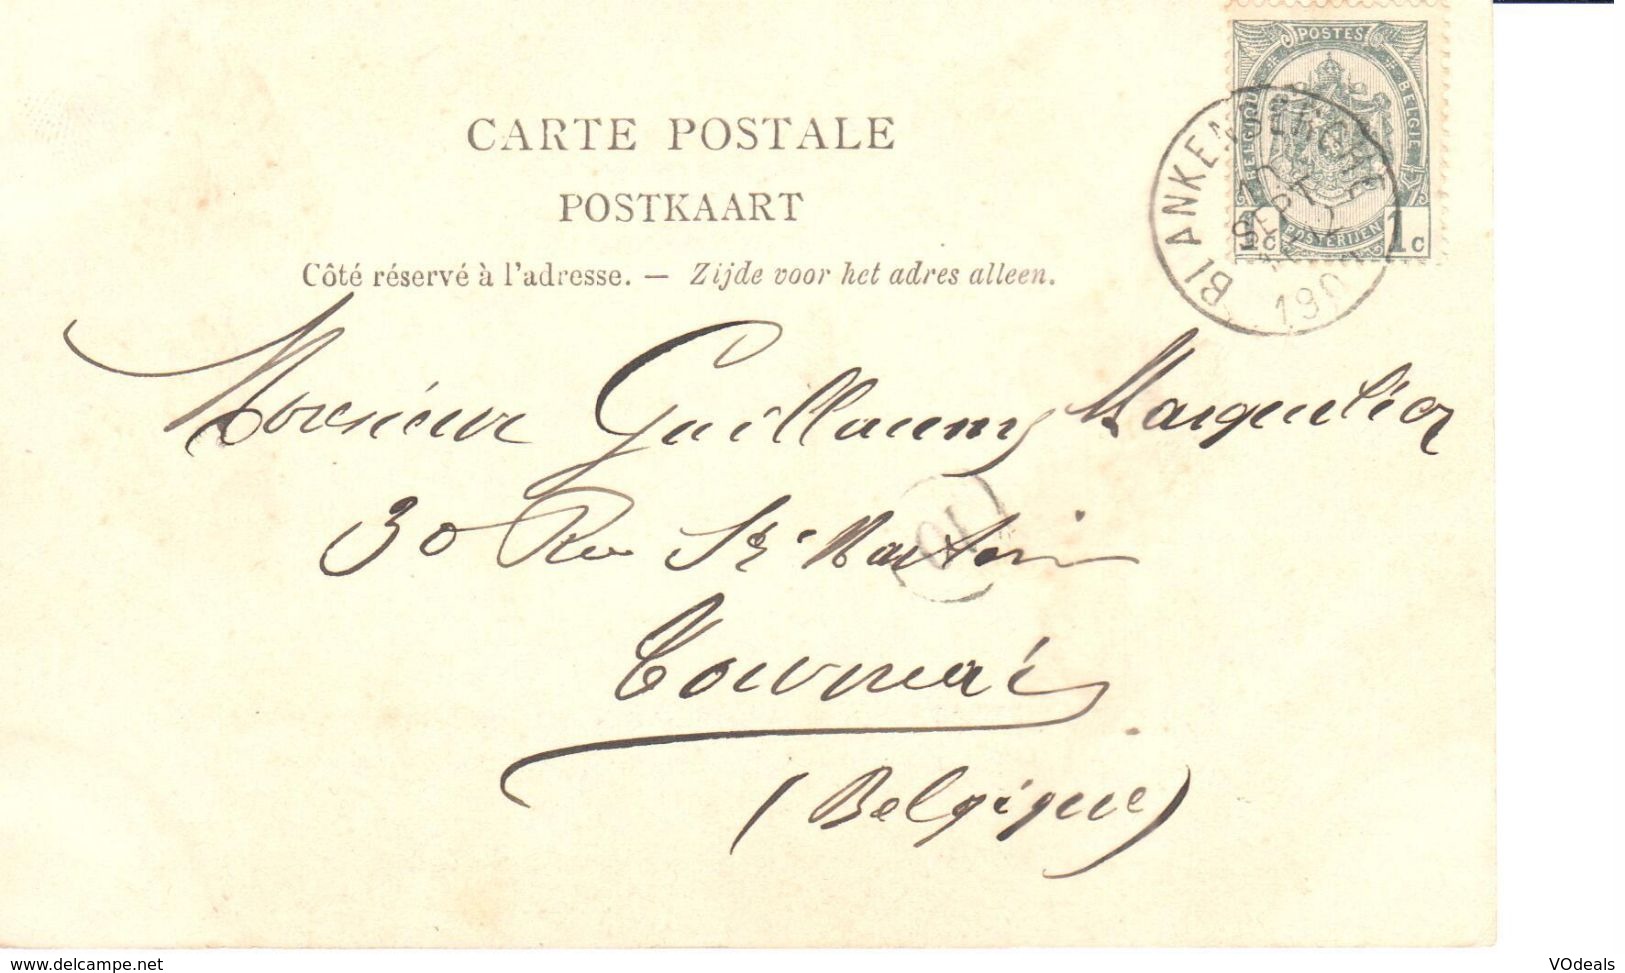 POSTES
BELGIQUE
BELGIE
POSTERIJEN
1c 1c
BLANKENBERGHE
SEPT
190
CARTE POSTALE
POSTKAART
Côté réservé à l'adresse. — Zijde voor het adres alleen.
Monsieur Guillaume
30 Rue St Martin
Tournai
(Belgique)
www.delcampe.net
VOdeals